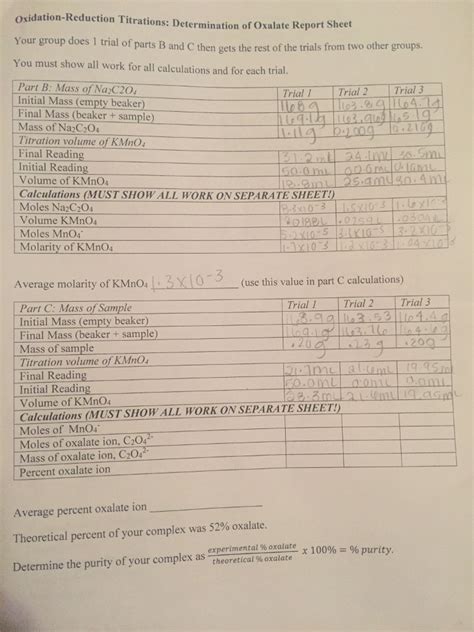 Oxidation-Reduction Titrations: Determination of Oxalate Report Sheet
Your group does 1 trial of parts B and C then gets the rest of the trials from two other groups.
You must show all work for all calculations and for each trial.
Part B: Mass of Na2C2O4 Trial 1 Trial 2 Trial 3
Initial Mass (empty beaker) 168g 163.8g 164.7g
Final Mass (beaker + sample) 169.1g
Mass of Na2C2O4 1.11g 0.200g 0.210g
Titration volume of KMnO4
Final Reading 31.2ml 24.1ml 30.5ml
Initial Reading 50.0ml
Volume of KMnO4 18.8ml 25.9ml 30.4ml
Calculations (MUST SHOW ALL WORK ON SEPARATE SHEET!)
Moles Na2C2O4 8.3x10-3 1.5x10-3 1.6x10-3
Volume KMnO4 .0188L .0259L .0304L
Moles MnO4- 5.2x10-5 3.1x10-5 3.2x10-5
Molarity of KMnO4 1.7x10-3 1.2x10-3 1.04x10-3
Average molarity of KMnO4 1.3x10-3 (use this value in part C calculations)
Part C: Mass of Sample Trial 1 Trial 2 Trial 3
Initial Mass (empty beaker) 168.9g 163.53 164.4g
Final Mass (beaker + sample) 169.1g 163.76
Mass of sample .20g .23g .20g
Titration volume of KMnO4
Final Reading 21.6ml 19.95ml
Initial Reading 50.0ml 0.0ml 0.0ml
Volume of KMnO4 28.3ml 21.6ml 19.95ml
Calculations (MUST SHOW ALL WORK ON SEPARATE SHEET!)
Moles of MnO4-
Moles of oxalate ion, C2O4 2-
Mass of oxalate ion, C2O4 2-
Percent oxalate ion
Average percent oxalate ion
Theoretical percent of your complex was 52% oxalate.
Determine the purity of your complex as experimental % oxalate / theoretical % oxalate x 100% = % purity.